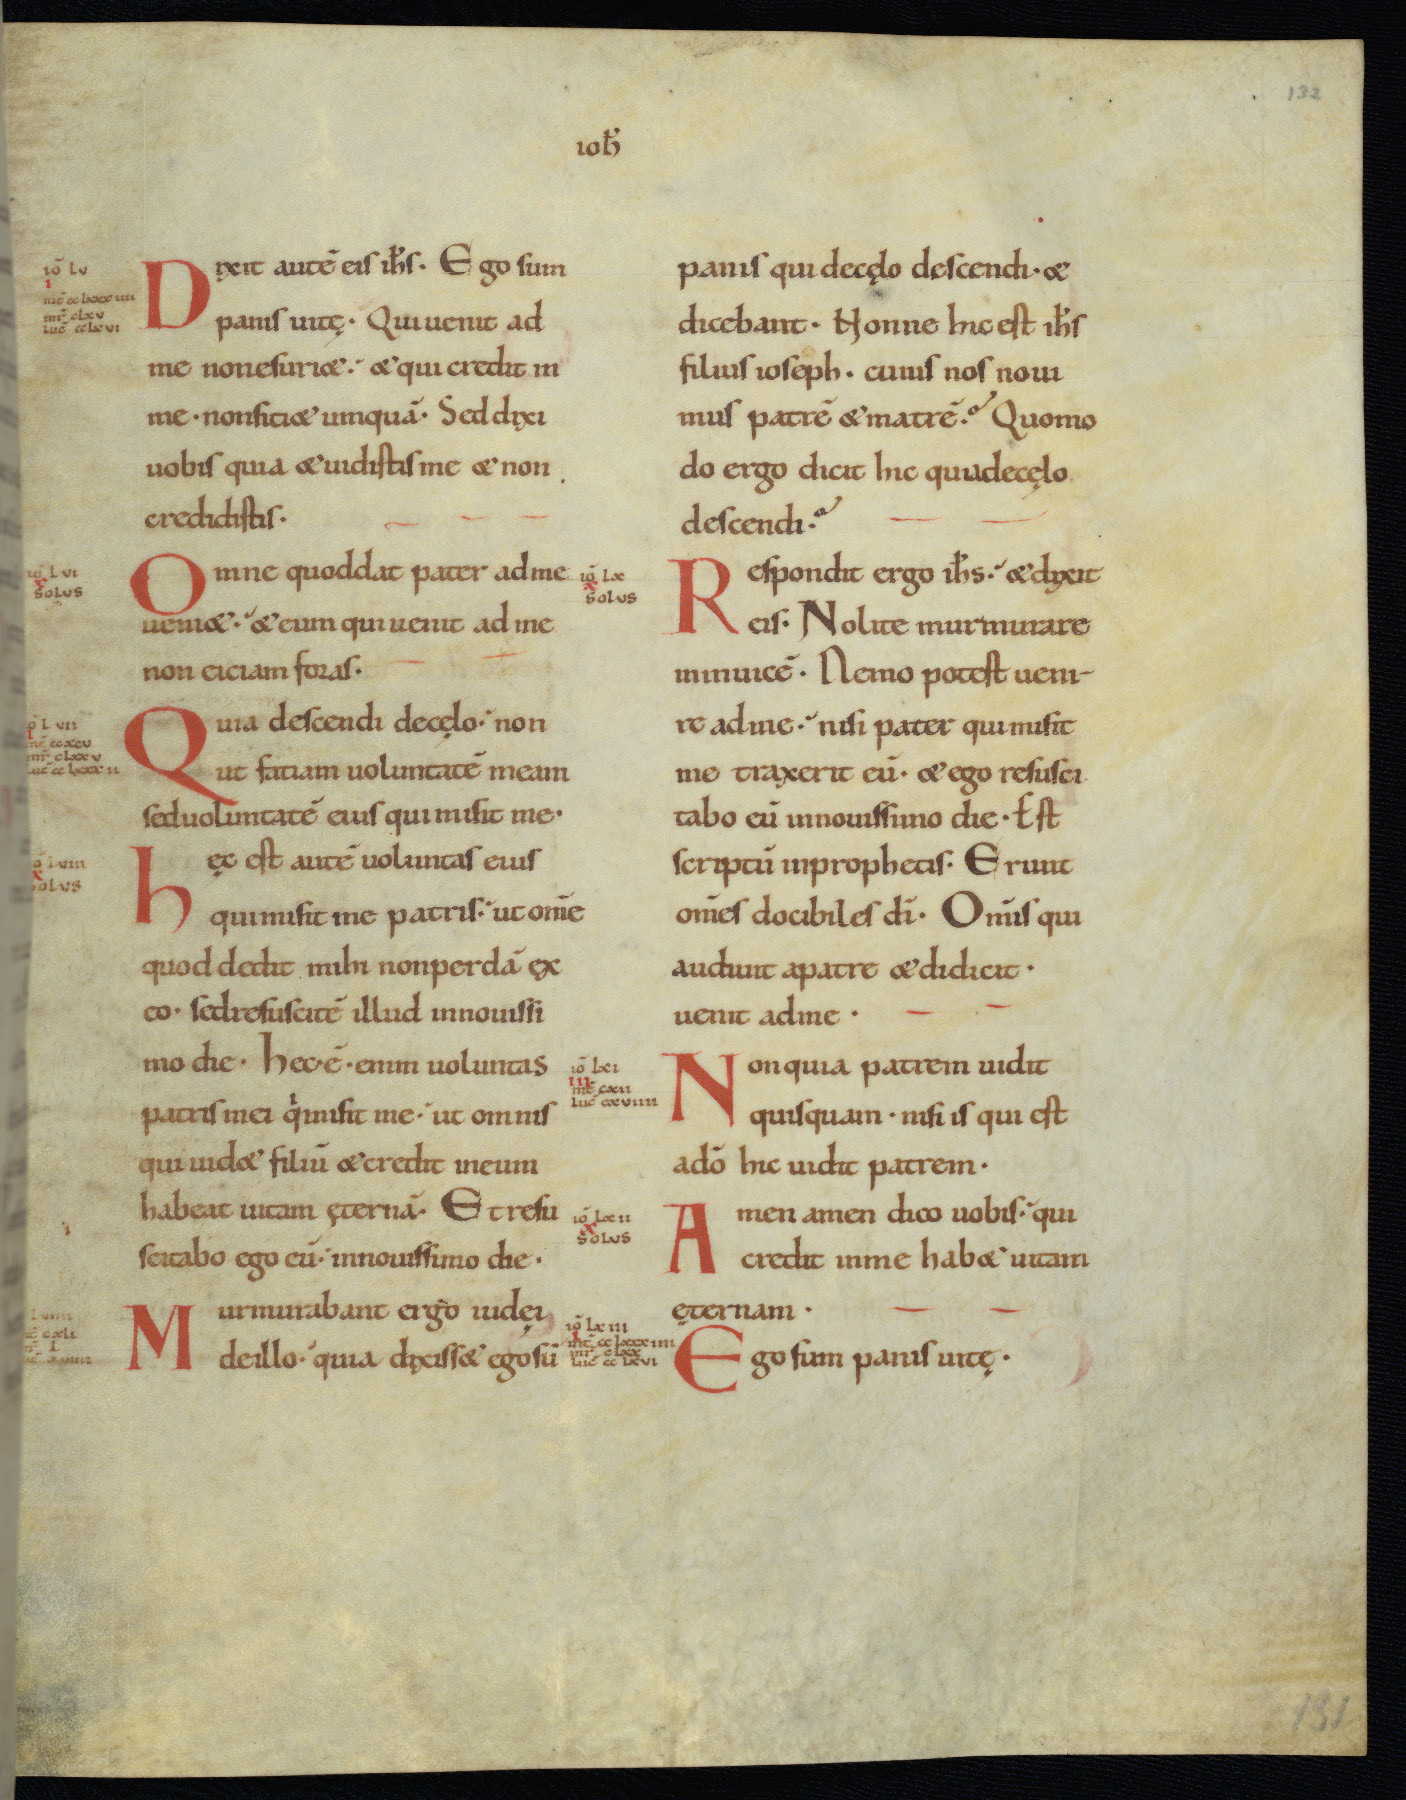 132
ioħ
iō lv
i
mt̄ cclxxxiiii
mr̄ clxv
luc̄ cclxvi
Dixit autē eis ih̄s. Ego sum
panis uitę. Qui uenit ad
me non esuriæ. æ qui credit in
me. non sitiæ umquā. Sed dixi
uobis quia æ uidistis me æ non
credidistis.
iō lvi
x
solus
Omne quod dat pater ad me
ueniæ. æ eum qui uenit ad me
non eiciam foras.
iō lvii
Quia descendi de cęlo. non
ut faciam uoluntatē meam
sed uoluntatē eius qui misit me.
iō lviii
x
solus
hęc est autē uoluntas eius
qui misit me patris. ut om̄e
quod dedit mihi non perdā ex
eo. sed resuscitē illud in nouissi
mo die. hec. ē. enim uoluntas
patris mei q̍ misit me. ut omnis
qui uidæ filiū æ credit in eum
habeat uitam ęternā. Et resu
scitabo ego eū. in nouissimo die.
Murmurabant ergo iudęi
de illo. quia dixissæ ego sū
panis qui de cęlo descendi. æ
dicebant. Nonne hic est ih̄s
filius ioseph. cuius nos noui
mus patrē æ matrē. Quomo
do ergo dicit hic quia de cęlo
descendi.
iō lx
x
solus
Respondit ergo ih̄s. æ dixit
eis. Nolite murmurare
in inuicē. Nemo potest ueni-
re ad me. nisi pater qui misit
me traxerit eū. æ ego resusci
tabo eū in nouissimo die. Est
scriptū in prophetis. Erunt
om̄es docibiles dī. Om̄is qui
audiuit a patre æ didicit.
uenit ad me.
iō lxi
iii
mt̄ cxii
luc̄ cxviiii
Non quia patrem uidit
quisquam. nisi is qui est
a dō hic uidit patrem.
iō lxii
x
solus
Amen amen dico uobis. qui
credit in me habæ uitam
ęternam.
iō lxiii
i
mt̄ cclxxxiiii
mr̄ clxv
luc̄ cclxvi
Ego sum panis uitę.
131